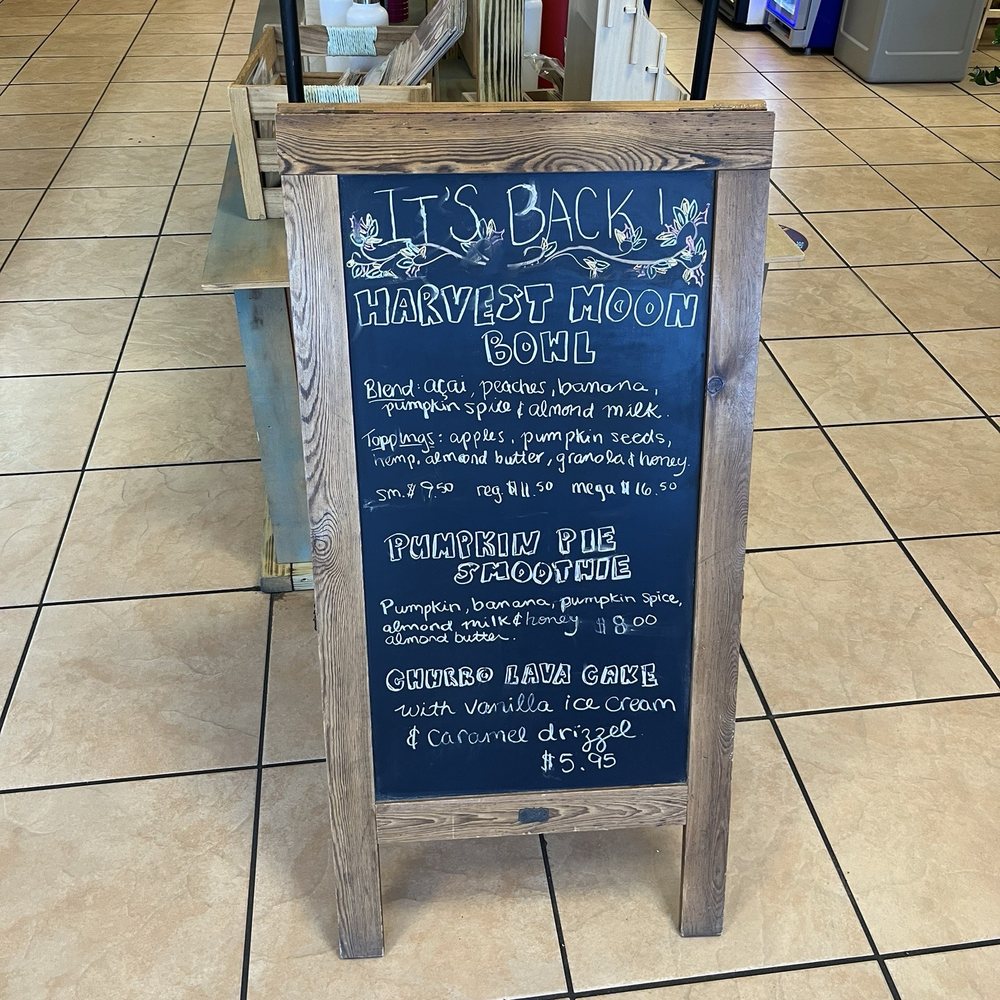 IT'S BACK!
HARVEST MOON
BOWL
Blend: açai, peaches, banana,
pumpkin spice & almond milk.
Toppings: apples, pumpkin seeds,
hemp, almond butter, granola & honey.
sm. $9.50 reg. $11.50 mega $16.50
PUMPKIN PIE
SMOOTHIE
Pumpkin, banana, pumpkin spice,
almond milk & honey $8.00
almond butter.
CHURRO LAVA CAKE
with vanilla ice cream
& caramel drizzel
$5.95